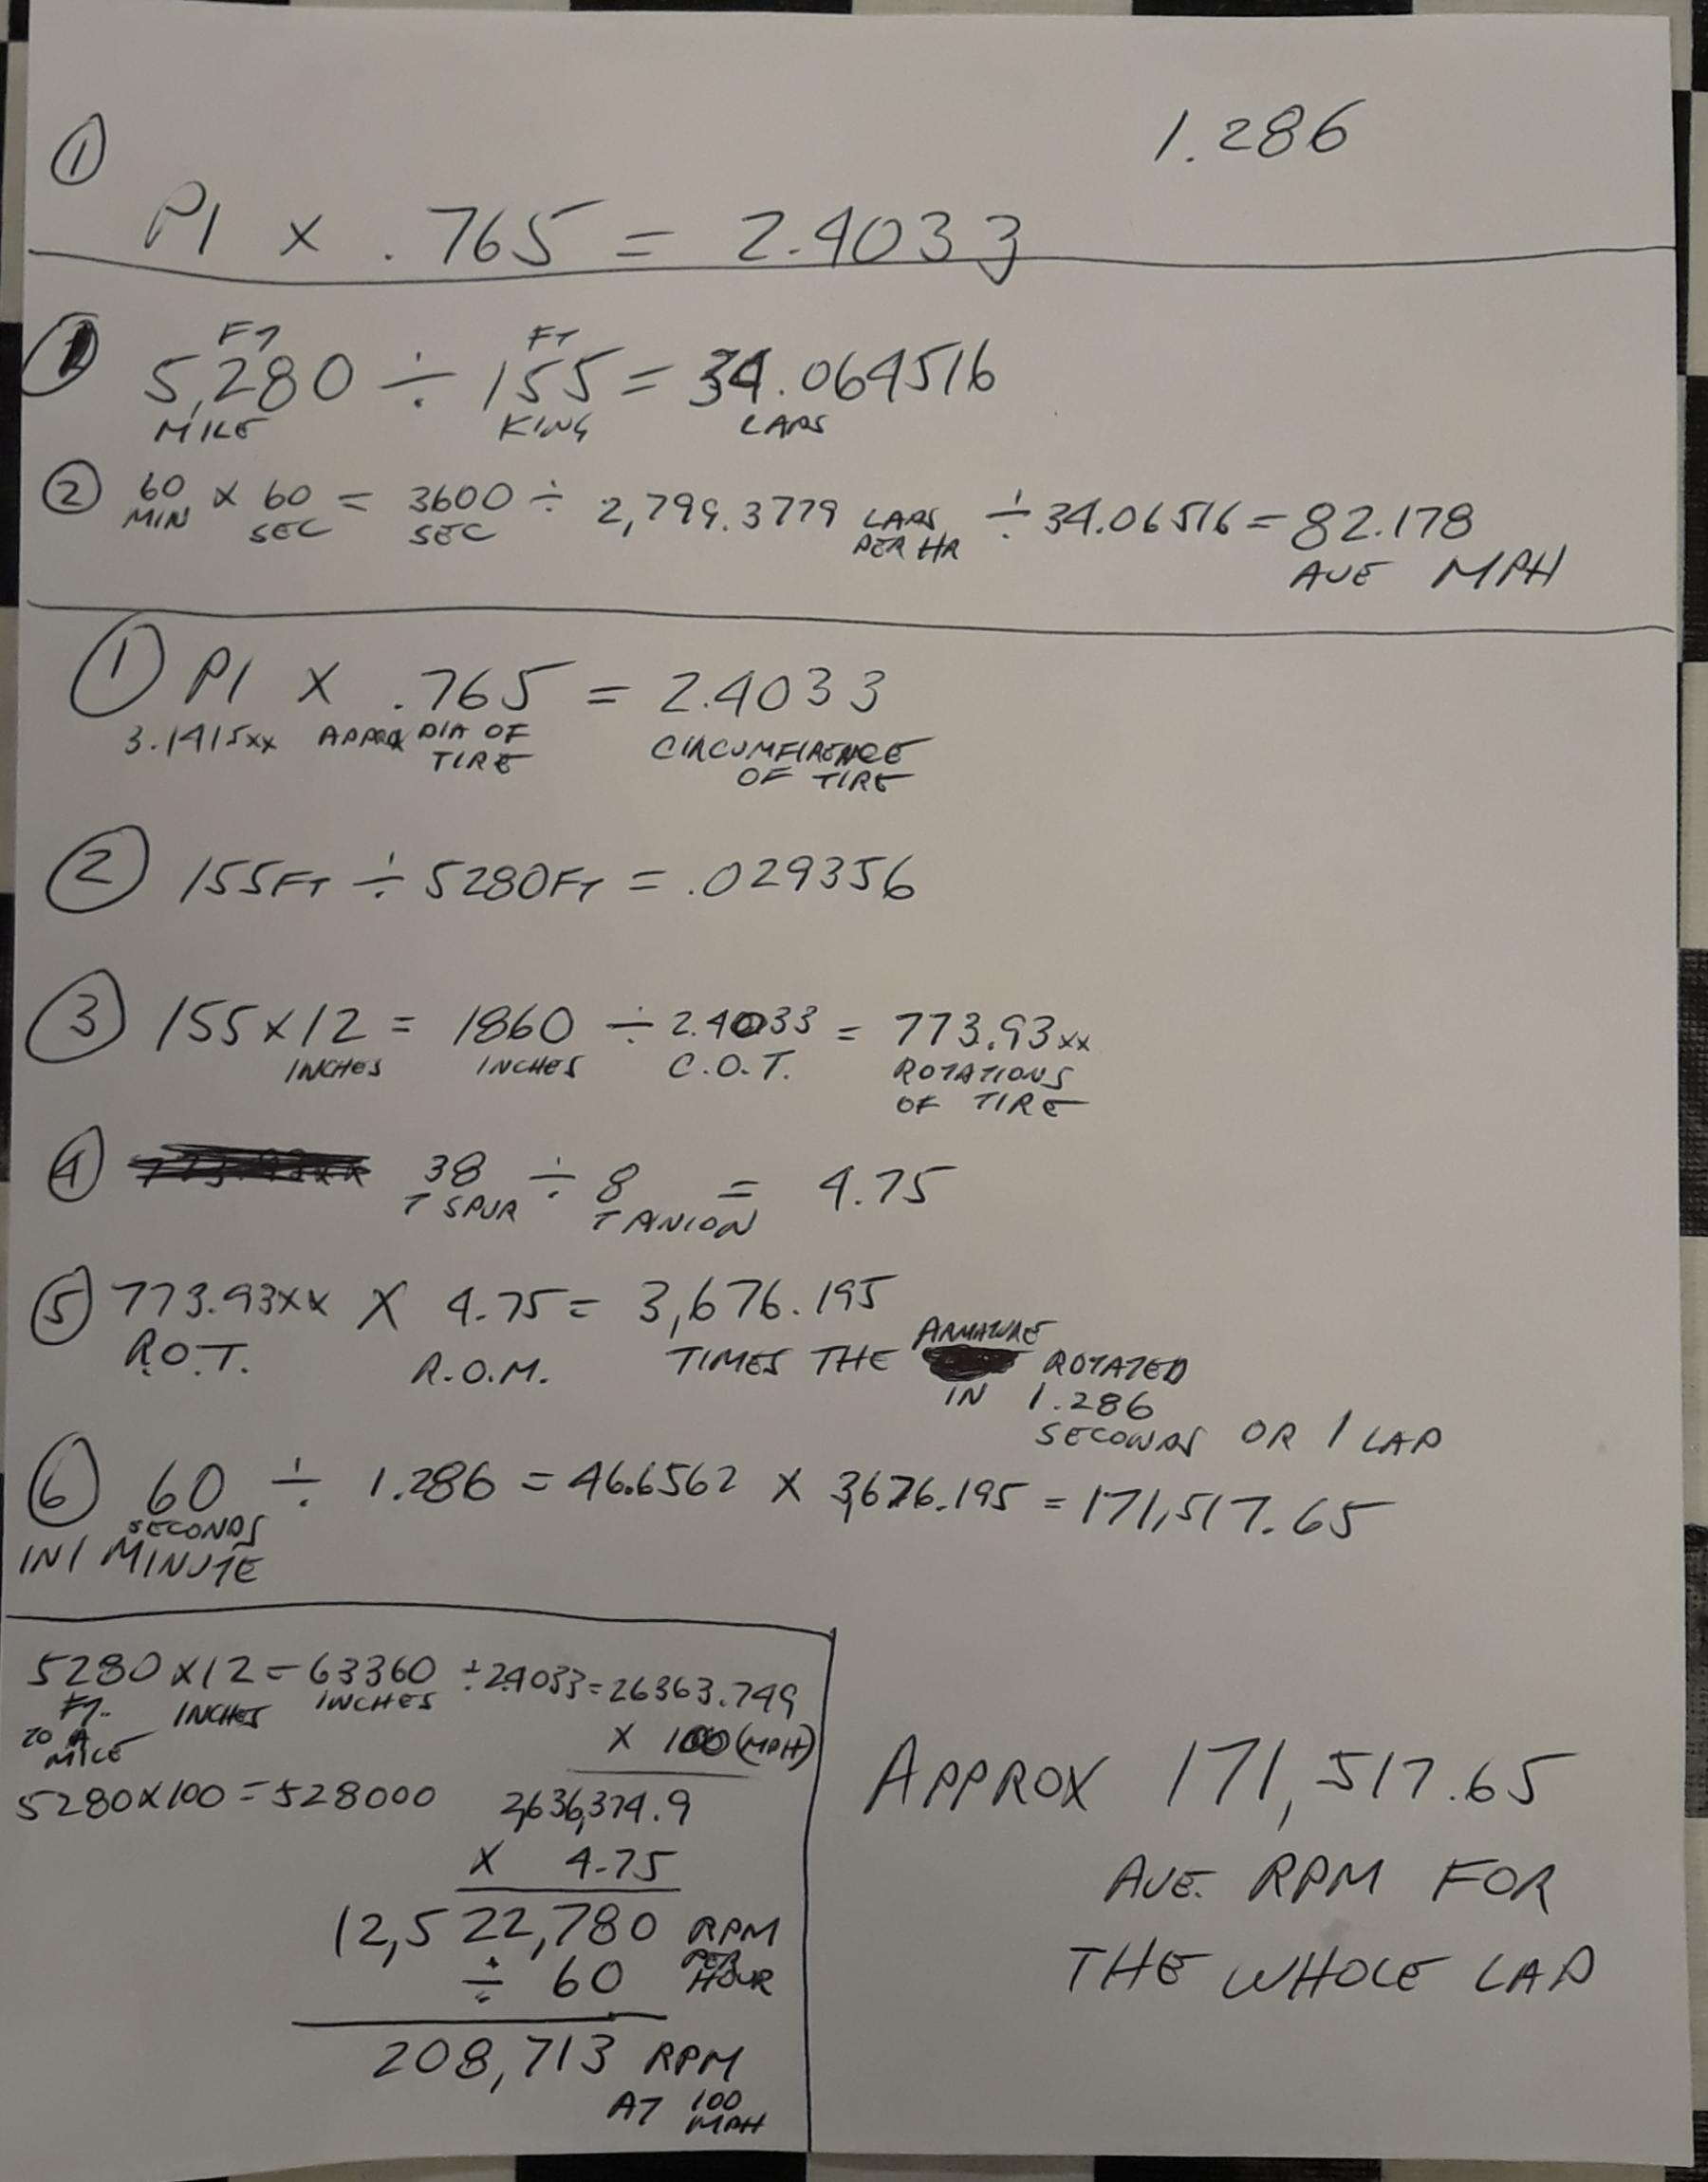 1.286
① PI × .765 = 2.4033
FT FT
① 5,280 ÷ 155 = 34.064516
MILE KING LAPS
② 60 × 60 = 3600 ÷ 2,799.3779 LAPS ÷ 34.06516 = 82.178
MIN SEC SEC PER HR AVE MPH
① PI × .765 = 2.4033
3.1415xx APPROX DIA OF CIRCUMFIRENCE
TIRE OF TIRE
② 155FT ÷ 5280FT = .029356
③ 155 × 12 = 1860 ÷ 2.4033 = 773.93xx
INCHES INCHES C.O.T. ROTATIONS
OF TIRE
④ 38 ÷ 8 = 4.75
T SPUR T PINION
⑤ 773.93xx × 4.75 = 3,676.195
R.O.T. R.O.M. TIMES THE ARMATURE ROTATED
IN 1.286
SECONDS OR 1 LAP
⑥ 60 ÷ 1.286 = 46.6562 × 3,676.195 = 171,517.65
SECONDS
IN 1 MINUTE
5280 × 12 = 63360 ÷ 2.4033 = 26363.749
FT. INCHES INCHES
TO A
MILE × 100 (MPH)
5280 × 100 = 528000 2,636,374.9
× 4.75
12,522,780 RPM
÷ 60 PER HOUR
208,713 RPM
AT 100
MPH
APPROX 171,517.65
AVE. RPM FOR
THE WHOLE LAP